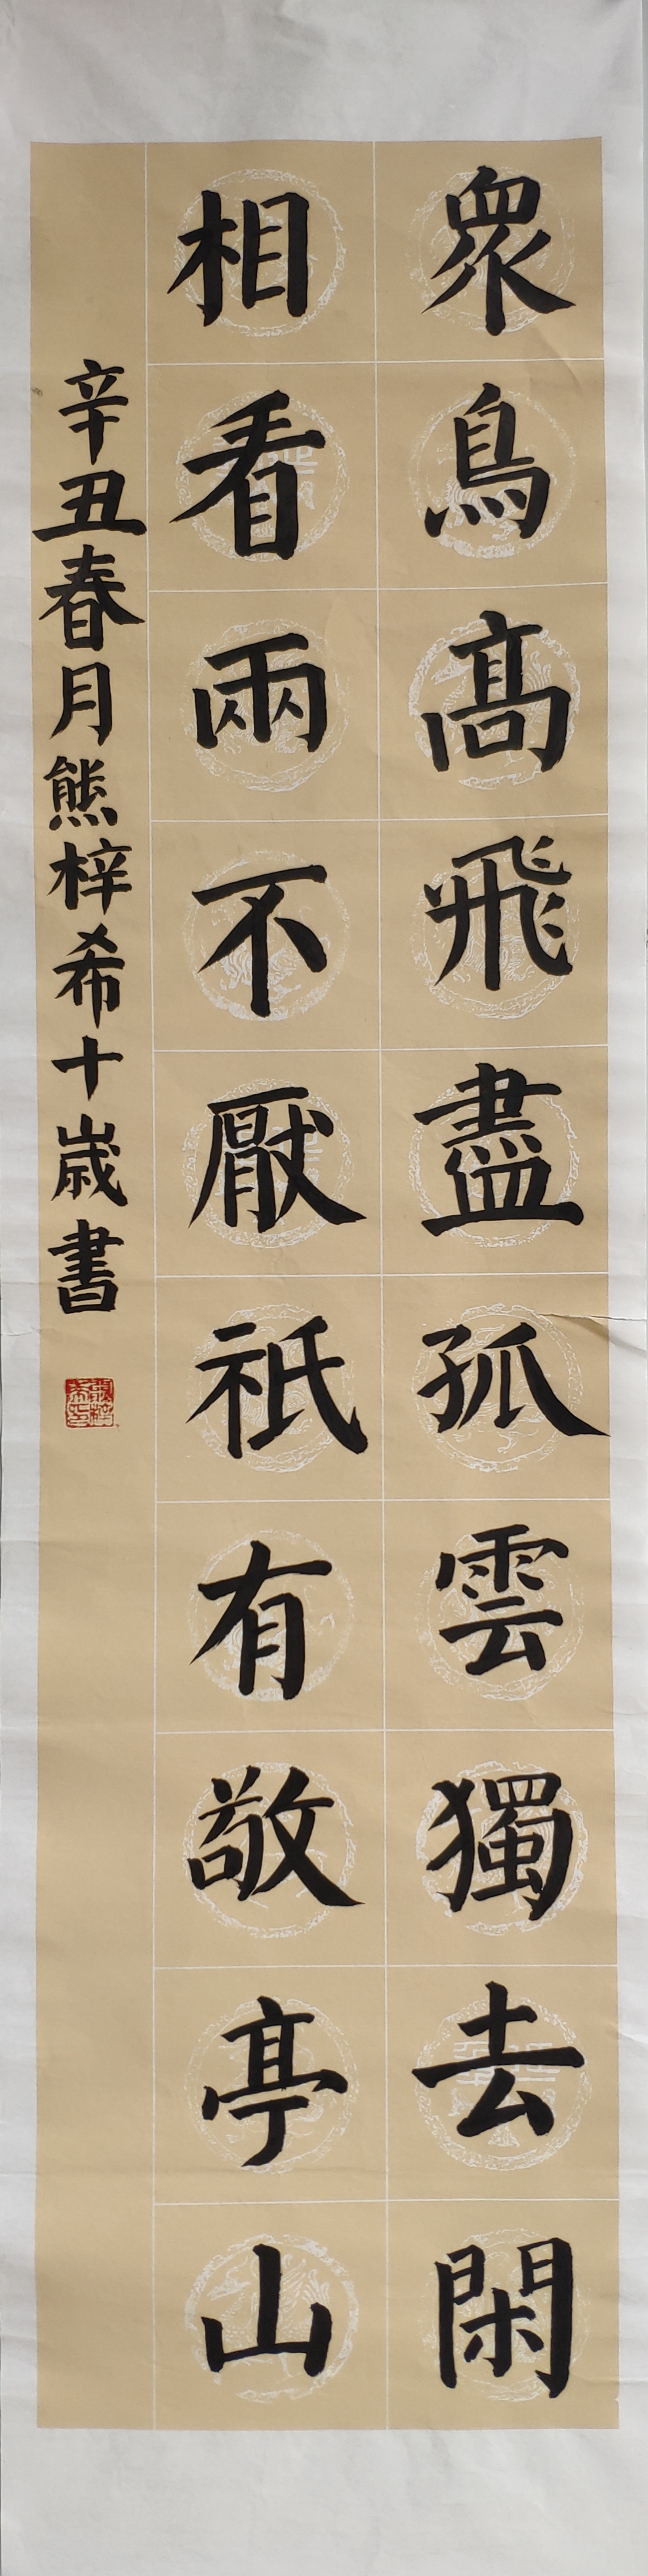 眾鳥髙飛盡孤雲獨去閑
相看兩不厭祇有敬亭山
辛丑春月熊梓希十歲書